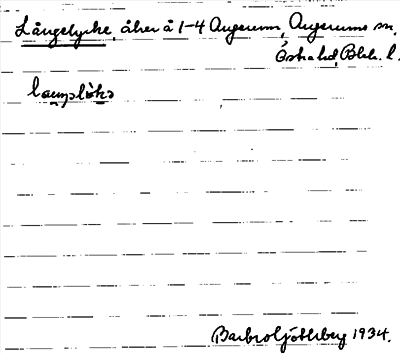 Långelycke, åker å 1-4 Augerum, Augerums sn,
Östra hd, Blek. l.
Barbro Ljöstberg 1934.